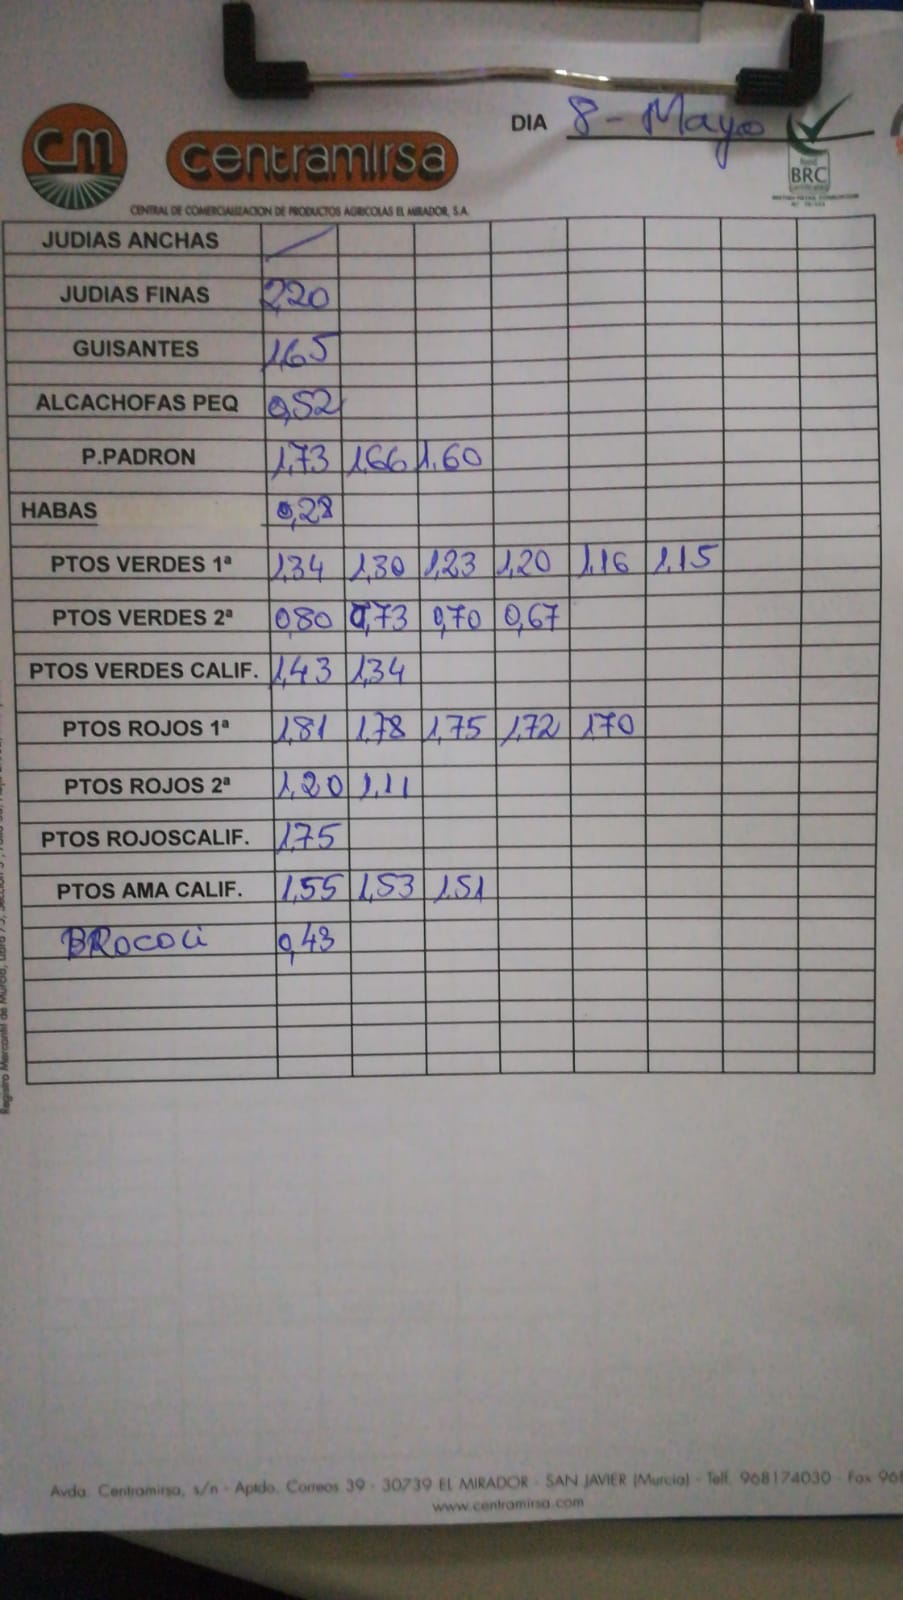 DIA 8 - Mayo
CM centramirsa
BRC
CENTRAL DE COMERCIALIZACION DE PRODUCTOS AGRICOLAS EL MIRADOR, S.A.
JUDIAS ANCHAS /
JUDIAS FINAS 2,20
GUISANTES 1,65
ALCACHOFAS PEQ 0,52
P.PADRON 1,73 1,66 1.60
HABAS 0,28
PTOS VERDES 1ª 1,34 1,30 1,23 1,20 1,16 1,15
PTOS VERDES 2ª 0,80 0,73 0,70 0,67
PTOS VERDES CALIF. 1,43 1,34
PTOS ROJOS 1ª 1,81 1,78 1,75 1,72 1,70
PTOS ROJOS 2ª 1,20 1,11
PTOS ROJOSCALIF. 1,75
PTOS AMA CALIF. 1,55 1,53 1,51
BROCOLI 0,43
Avda. Centramirsa, s/n - Aptdo. Correos 39 - 30739 EL MIRADOR - SAN JAVIER (Murcia) - Telf. 968174030 - Fax 968
www.centramirsa.com